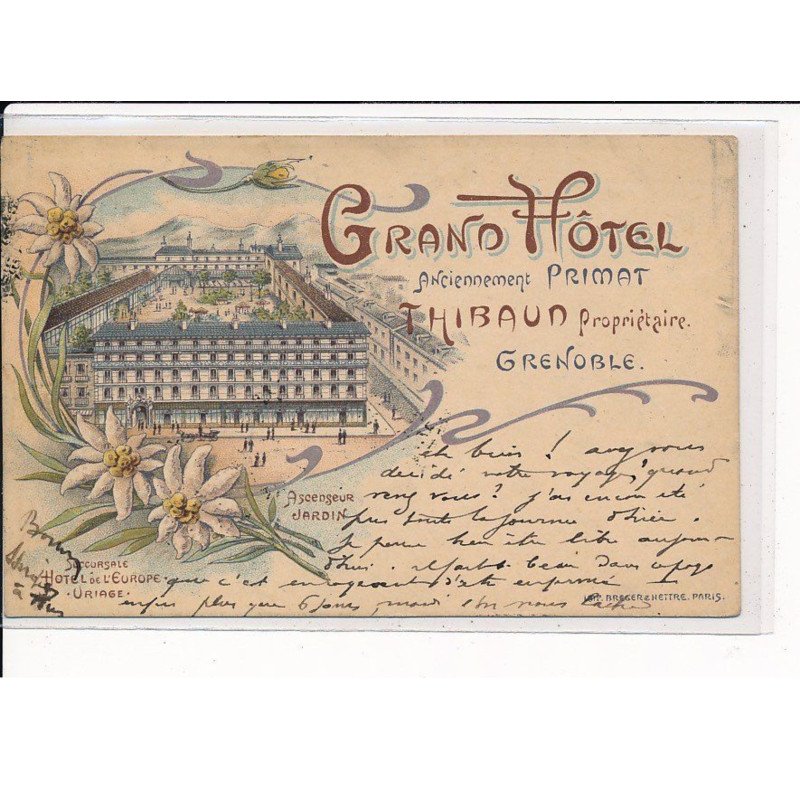 GRAND HÔTEL
Anciennement PRIMAT
THIBAUD Propriétaire.
GRENOBLE.
ASCENSEUR
JARDIN
SUCCURSALE
HOTEL DE L'EUROPE
URIAGE.
eh bien ! avez vous
décidé votre voyage, quand
venez vous? j'ai encore été
toute la journée d'hier.
Je pense bien être libre aujour-
d'hui. il fait beau dans
que c'est enrageant d'être enfermé
enfin plus que 6 jours, mardi
IMP. BREGER & NEITRE, PARIS.